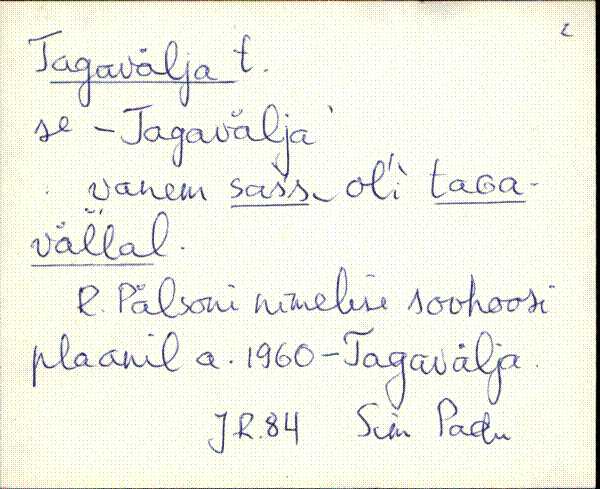 Tagavälja t.
se – Tagavälja
vanem sass oli taGa-
vällal.
R. Pälsoni nimelise sovhoosi
plaanil a. 1960 – Tagavälja.
JR.84 Siim Padu